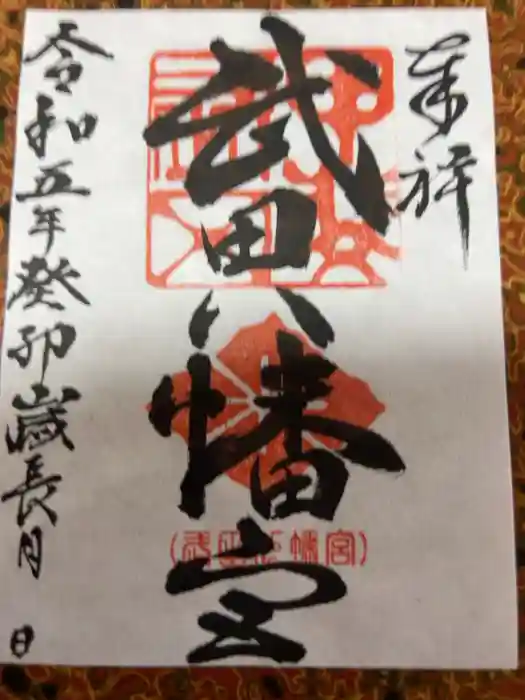 奉拝
武田八幡宮
(武田八幡宮)
令和五年癸卯歳長月 日